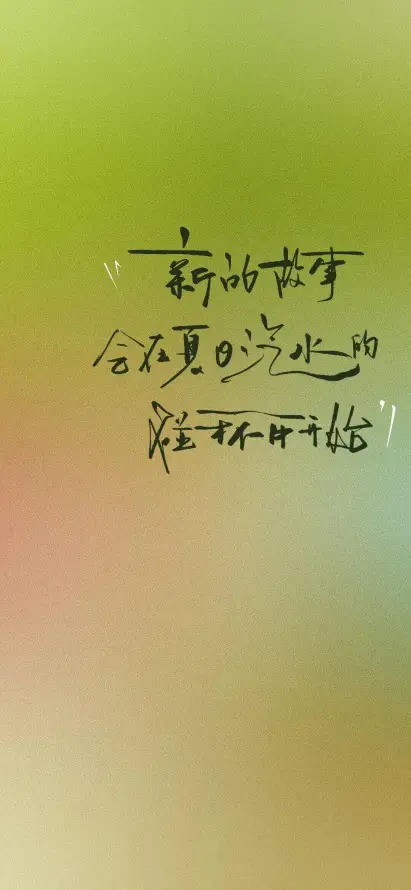 “新的故事
会在夏日汽水的
碰杯中开始”